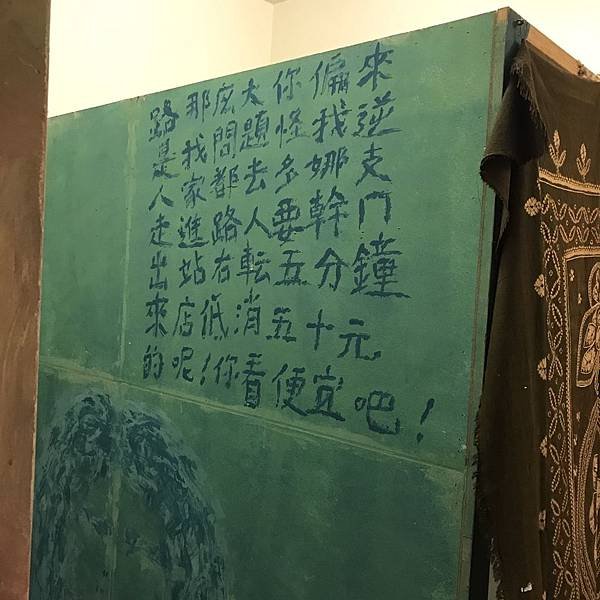 路那庅大你偏來
是我問題怪我逆
人家都去多娜支
走進路人要幹门
出站右転五分鐘
來店低消五十元
的呢!你看便宜吧!